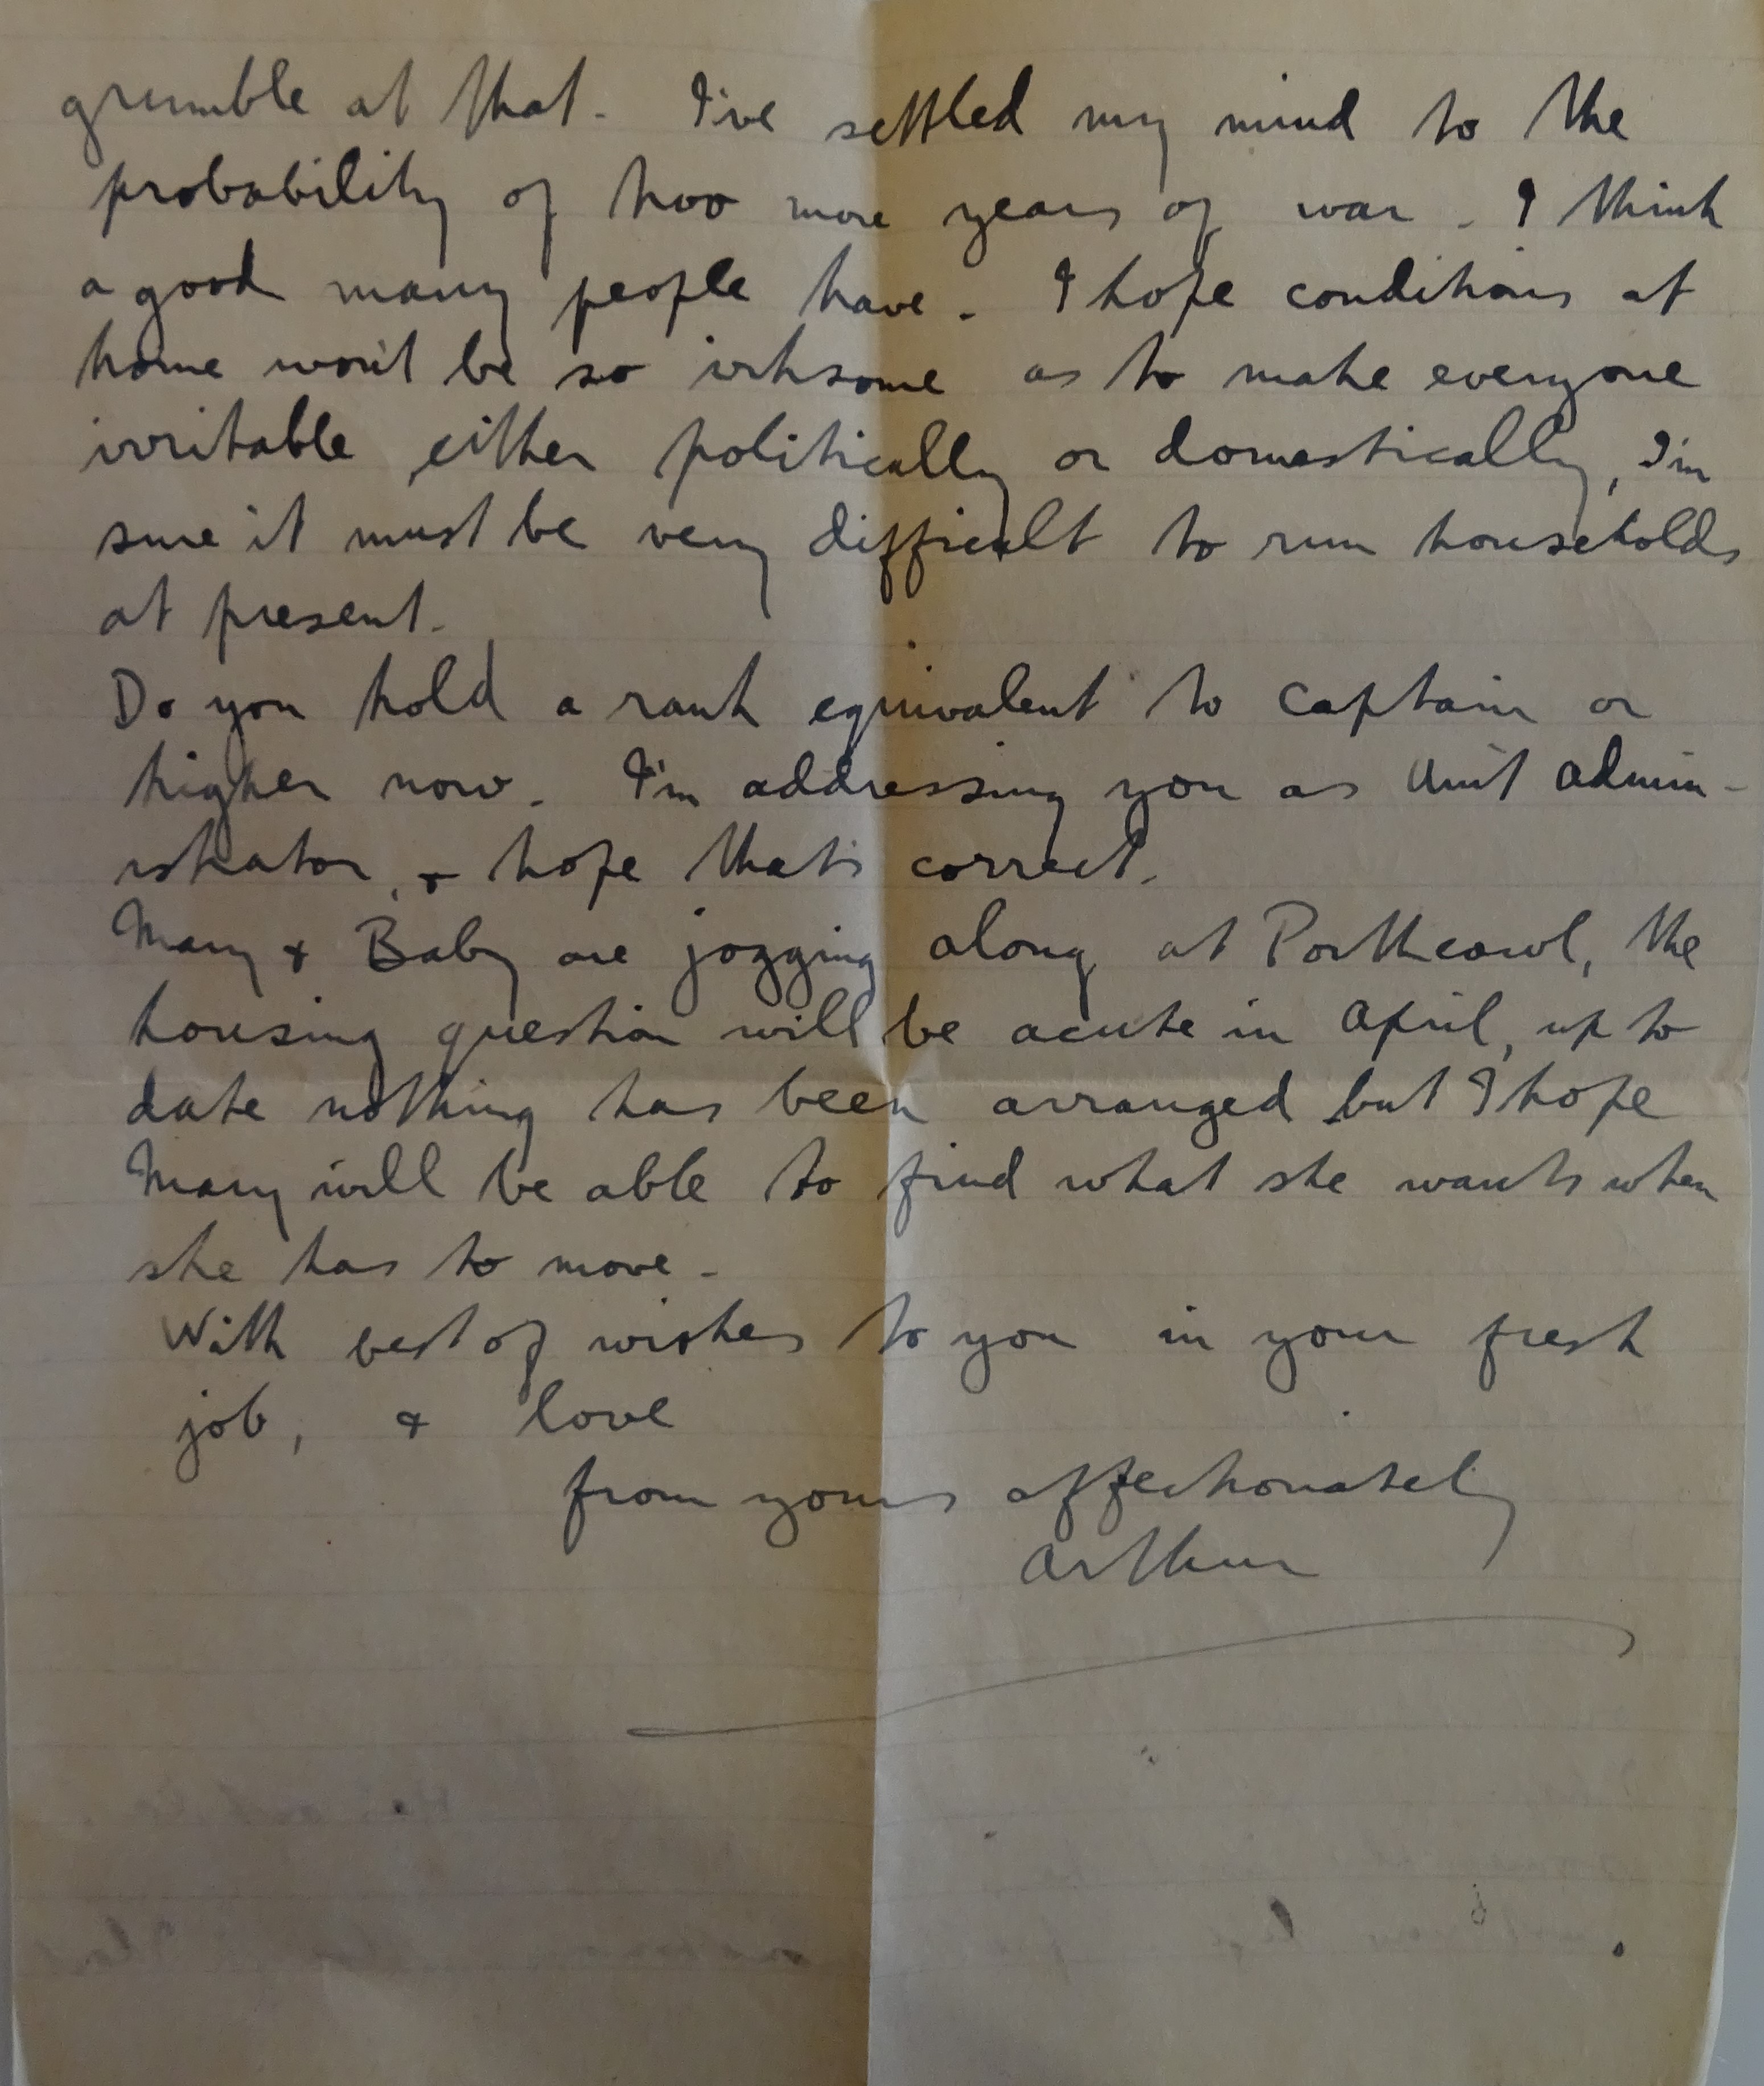 grumble at that. I've settled my mind to the
probability of two more years of war. I think
a good many people have. I hope conditions at
home won't be so irksome as to make everyone
irritable either politically or domestically, I'm
sure it must be very difficult to run households
at present.
Do you hold a rank equivalent to Captain or
higher now. I'm addressing you as Unit Admin-
istrator, & hope that's correct.
Mary & Baby are jogging along at Porthcawl, the
housing question will be acute in April, up to
date nothing has been arranged but I hope
Mary will be able to find what she wants when
she has to move.
With best of wishes to you in your fresh
job, & love
from yours affectionately
Arthur